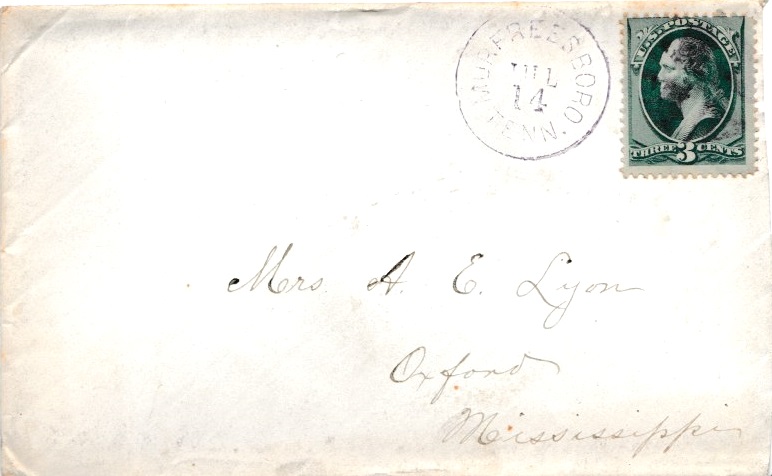 MURFREESBORO,
JUL
14
TENN.
U.S. POSTAGE
THREE 3 CENTS
Mrs. A. E. Lyon
Oxford
Mississippi